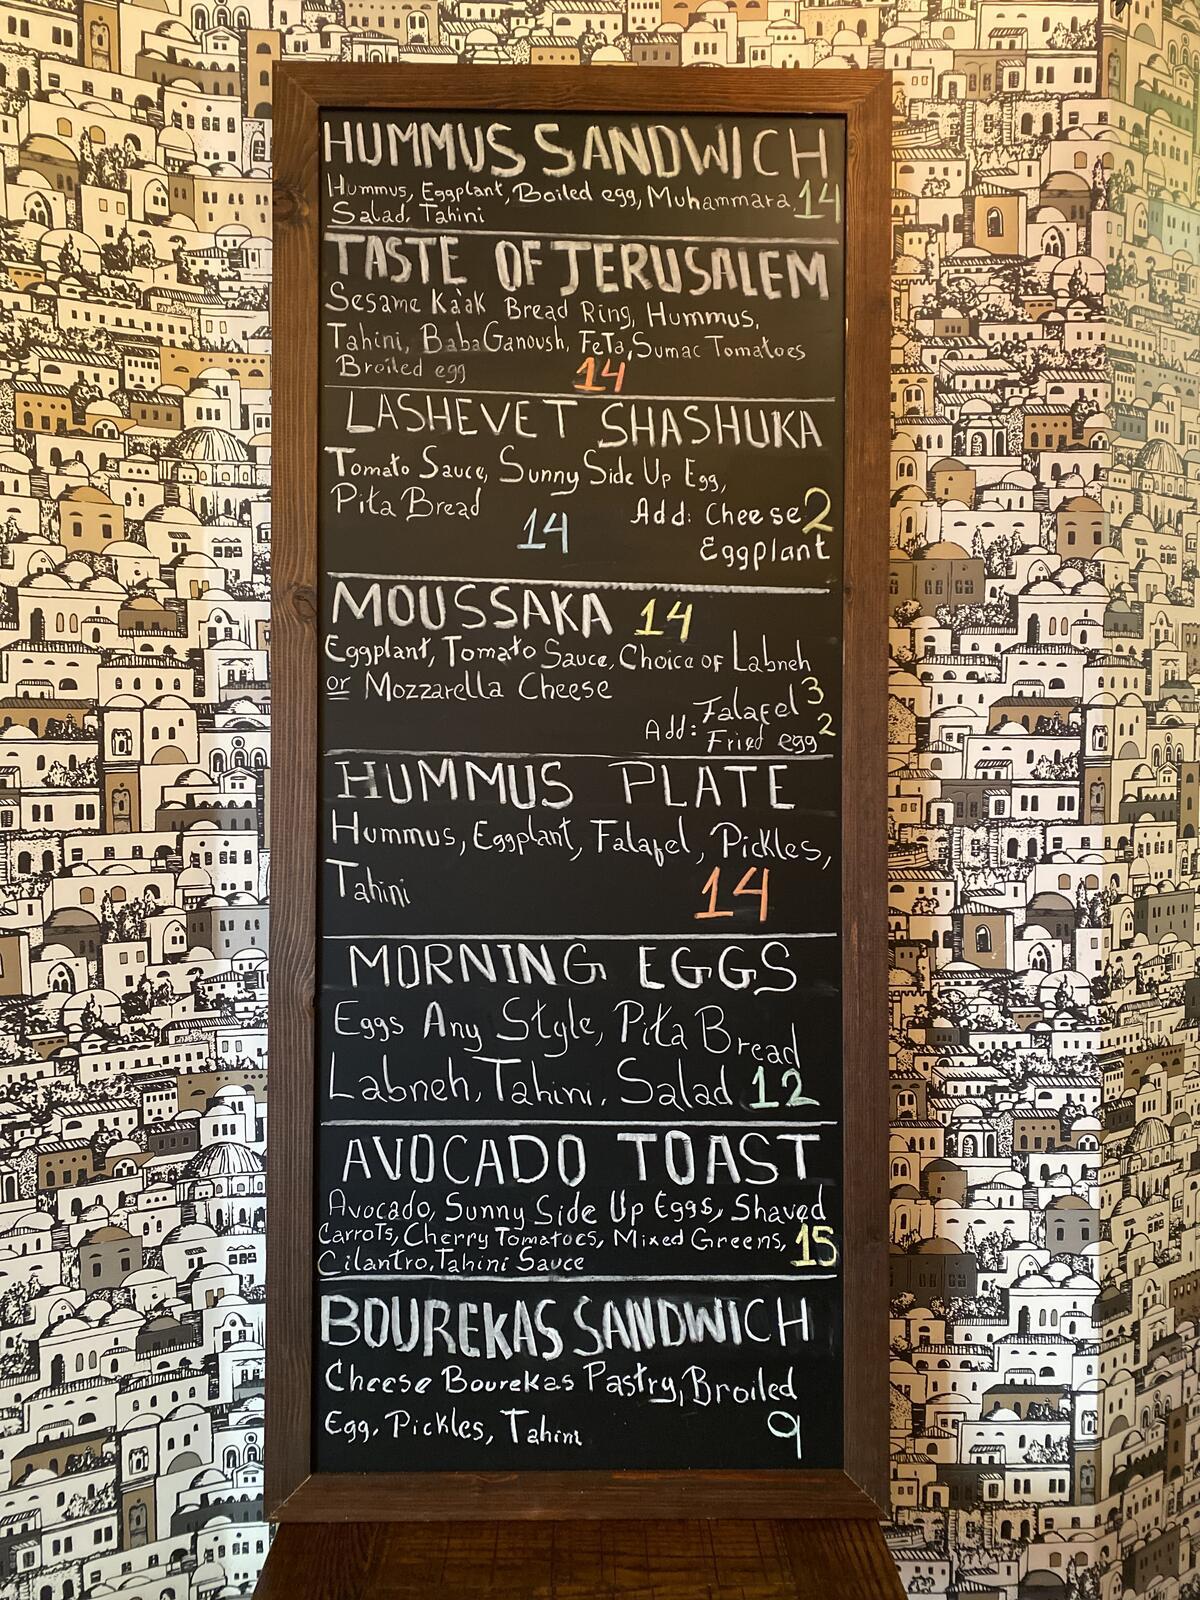 HUMMUS SANDWICH
Hummus, Eggplant, Boiled egg, Muhammara, 14
Salad, Tahini
TASTE OF JERUSALEM
Sesame Ka'ak Bread Ring, Hummus,
Tahini, Baba Ganoush, FeTa, Sumac Tomatoes
Broiled egg 14
LASHEVET SHASHUKA
Tomato Sauce, Sunny Side Up Egg,
Pita Bread 14 Add: Cheese 2
Eggplant
MOUSSAKA 14
Eggplant, Tomato Sauce, Choice of Labneh
or Mozzarella Cheese
Add: Falafel 3
Fried egg 2
HUMMUS PLATE
Hummus, Eggplant, Falafel, Pickles,
Tahini 14
MORNING EGGS
Eggs Any Style, Pita Bread
Labneh, Tahini, Salad 12
AVOCADO TOAST
Avocado, Sunny Side Up Eggs, Shaved
Carrots, Cherry Tomatoes, Mixed Greens, 15
Cilantro, Tahini Sauce
BOUREKAS SANDWICH
Cheese Bourekas Pastry, Broiled
Egg, Pickles, Tahini 9